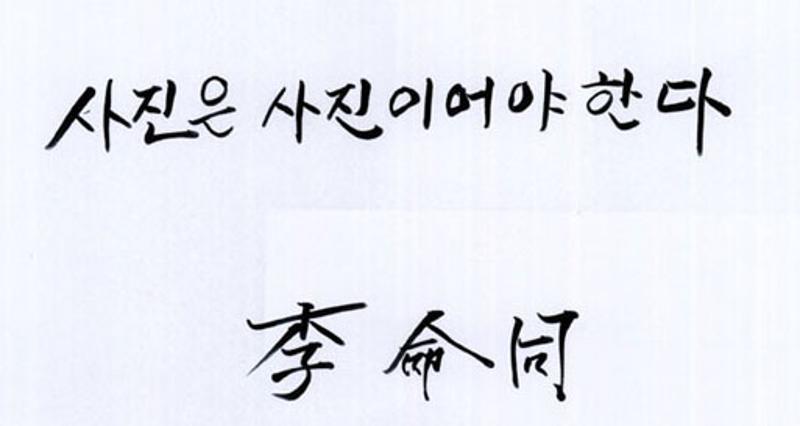 사진은 사진이어야 한다
李命同